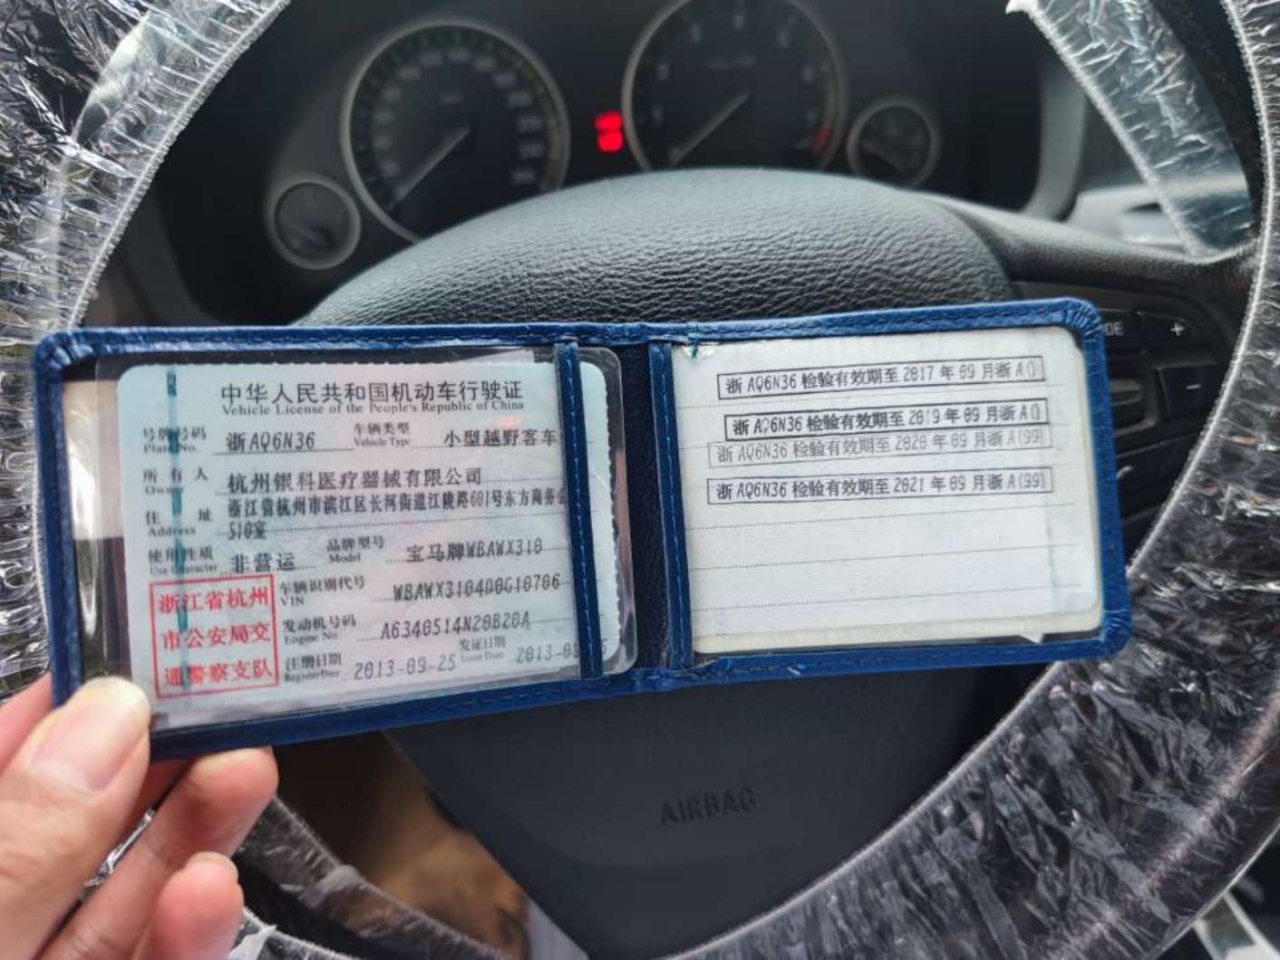 中华人民共和国机动车行驶证
Vehicle License of the People's Republic of China
号牌号码 浙AQ6N36 车辆类型 小型越野客车
Plate No. Vehicle Type
所有人 杭州银科医疗器械有限公司
Owner
住址 浙江省杭州市滨江区长河街道江陵路601号东方商务
Address 510室
使用性质 非营运 品牌型号 宝马牌WBAWX310
Use Character Model
浙江省杭州
市公安局交
通警察支队
车辆识别代号 WBAWX3104D0G10706
VIN
发动机号码 A6340514N20B20A
Engine No.
注册日期 2013-09-25 发证日期 2013-09
Register Date Issue Date
浙AQ6N36 检验有效期至2017年09月浙A()
浙AQ6N36 检验有效期至2019年09月浙A()
浙AQ6N36 检验有效期至2020年09月浙A(99)
浙AQ6N36 检验有效期至2021年09月浙A(99)
AIRBAG